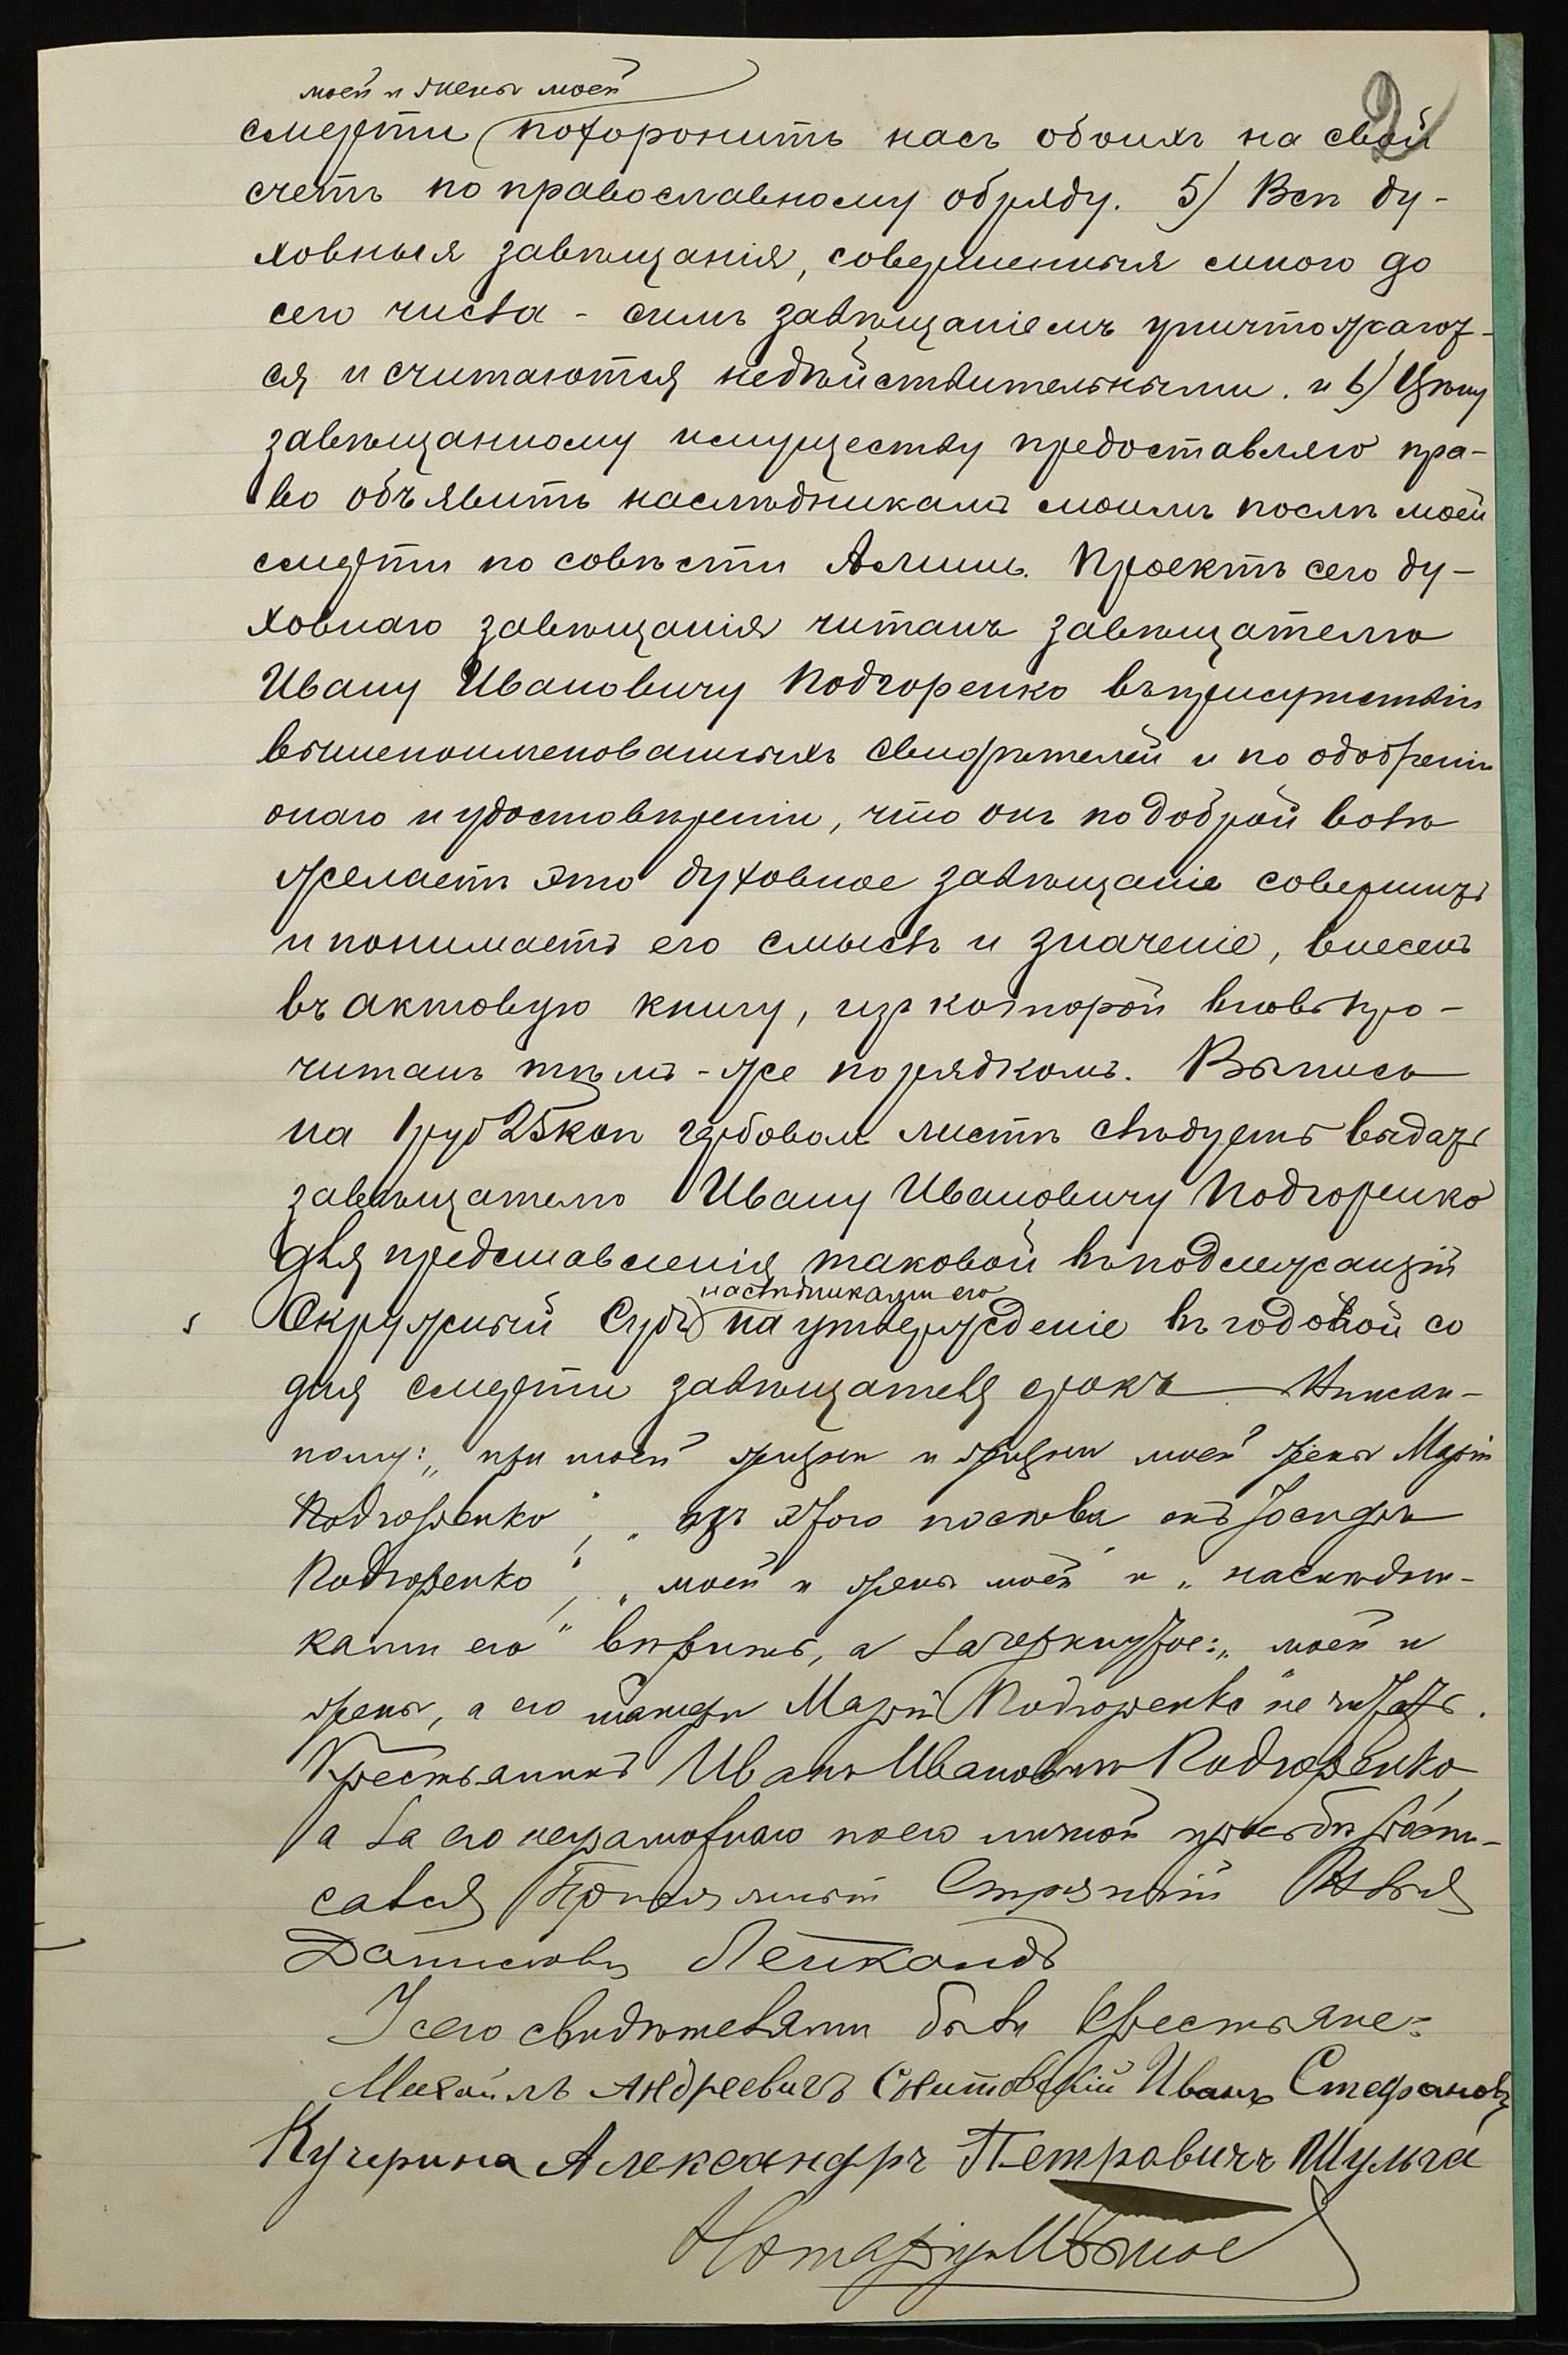 2
моей и жены моей
смерти похоронить насъ обоихъ на свой
счетъ по православному обряду. 5) Всѣ ду-
ховныя завѣщанія, совершенныя мною до
сего числа - симъ завѣщаніемъ уничтожают-
ся и считаются недѣйствительными. и 6) Цѣну
завѣщанному имуществу предоставляю пра-
во объявить наслѣдникамъ моимъ послѣ моей
смерти по совѣсти Аминь. Проектъ сего ду-
ховнаго завѣщанія читанъ завѣщателю
Ивану Ивановичу Подгоренко въ присутствіи
вышепоименованныхъ свидѣтелей и по одобреніи
онаго и удостовѣреніи, что онъ по доброй волѣ
желаетъ это духовное завѣщаніе совершить
и понимаетъ его смыслъ и значеніе, внесенъ
въ актовую книгу, изъ которой вновь про-
читанъ тѣмъ-же порядкомъ. Выпись
на 1 руб 25 коп гербовом листѣ слѣдуетъ выдать
завѣщателю Ивану Ивановичу Подгоренко
для представленія таковой въ подлежащій
наслѣдниками его
Окружный Судъ на утвержденіе въ годовой со
дня смерти завѣщателя срокъ Приписан-
ному: „при моей жизни и жизни моей жены Маріи
Подгоренко", „изъ этого послѣ
Подгоренко", „моей и жены моей" и „наслѣдни-
ками его" вѣрить, а зачеркнутое: „моей и
жены, а его матери Маріи Подгоренко" не читать.
Крестьянинъ Иванъ Ивановичъ Подгоренко,
а за его неграмотнаго по его личной просьбѣ распи-
сался Присяжный Стряпчій Илья
Даниловъ Лейкандъ
У сего свидѣтелями были крестьяне:
Михаилъ Андреевичъ Снитовскій Иванъ Стефановъ
Кучерина Александръ Петровичъ Шульга
Нотаріусъ